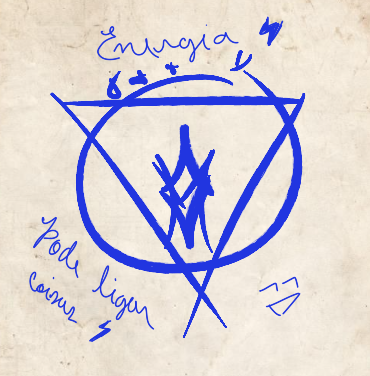 Energia
Pode ligar
coisas